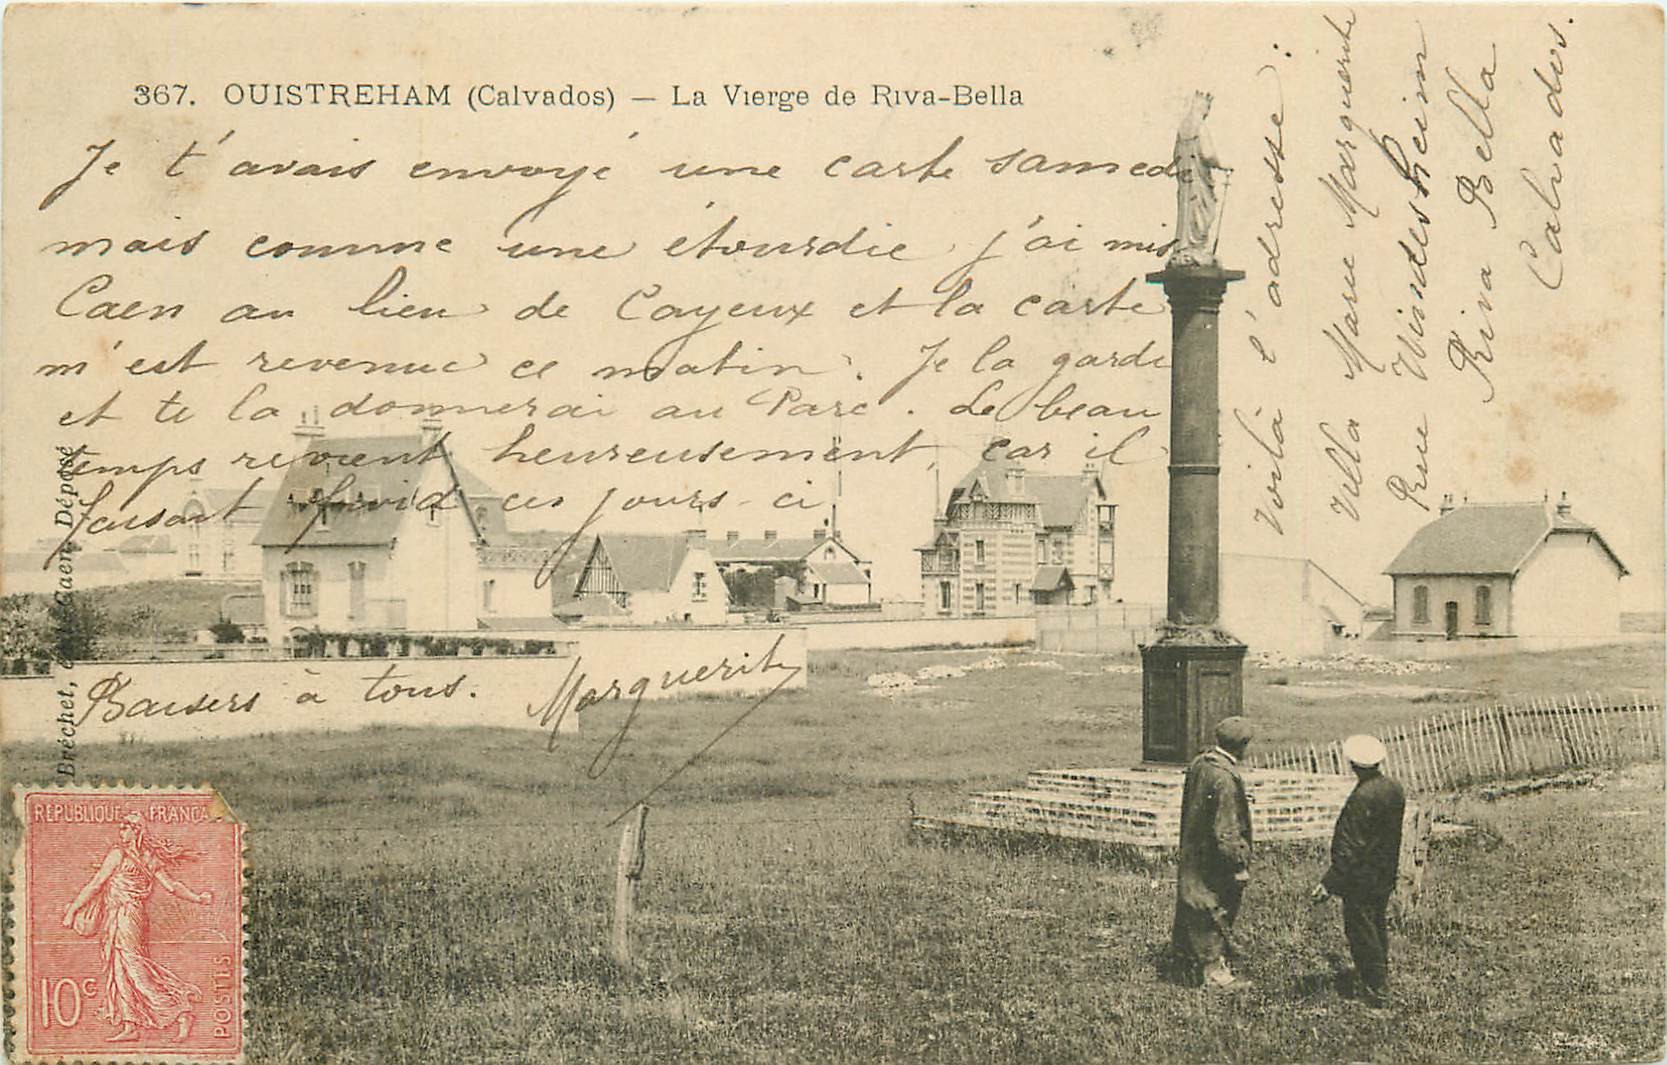 367. OUISTREHAM (Calvados) — La Vierge de Riva-Bella
Je t'avais envoyé une carte samedi
mais comme une étourdie j'ai mis
Caen au lieu de Cayeux et la carte
m'est revenue ce matin. Je la garde
et te la donnerai au Parc. Le beau
temps revient heureusement, car il
faisait froid ces jours-ci
Baisers à tous. Marguerite
Voilà l'adresse :
Villa Marie Marguerite
Rue Windesheim
Riva Bella
Calvados.
Bréchet, Caen Déposé
REPUBLIQUE FRANCA
10c
POSTES